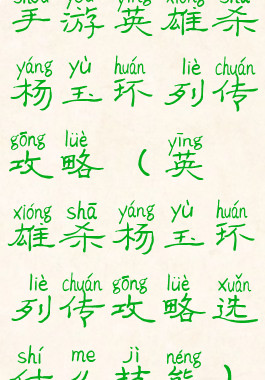 shǒu yóu yīng xióng shā
手游英雄杀
yáng yù huán liè chuán
杨玉环列传
gōng lüè yīng
攻略（英
xióng shā yáng yù huán
雄杀杨玉环
liè chuán gōng lüè xuǎn
列传攻略选
shí me jì néng
什么技能）